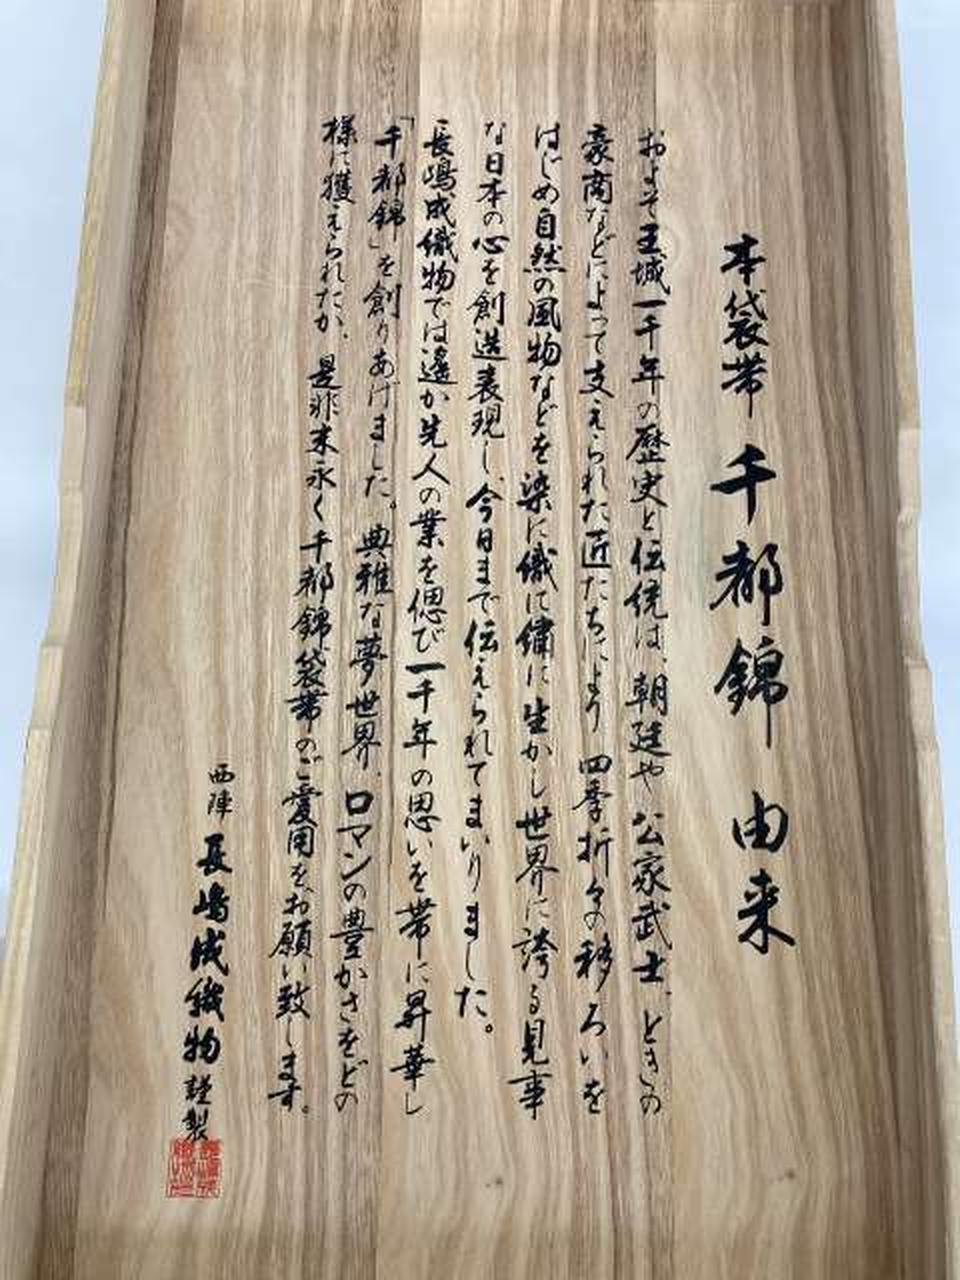 本袋帯 千都錦 由来
およそ王城一千年の歴史と伝統は、朝廷や公家武士、ときの
豪商などによって支えられた匠たちにより 四季折々の移ろいを
はじめ自然の風物などを染に織に繍に生かし世界に誇る見事
な日本の心を創造表現し、今日まで伝えられてまいりました。
長嶋成織物では遙か先人の業を偲び一千年の思いを帯に昇華し
「千都錦」を創りあげました。典雅な夢世界、ロマンの豊かさをどの
様に獲えられたか、是非末永く千都錦袋帯のご愛用を、お願い致します。
西陣 長嶋成織物 謹製